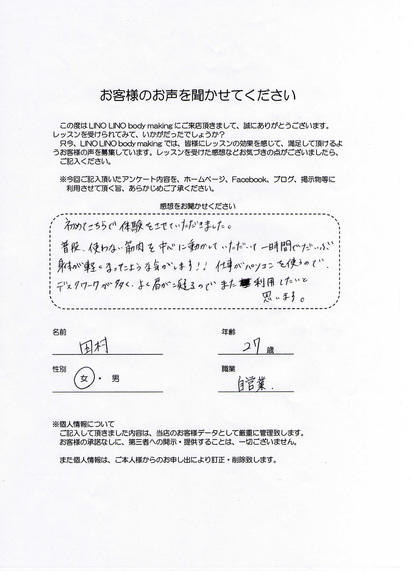 お客様のお声を聞かせてください
この度は LINO LINO body making にご来店頂きまして、誠にありがとうございます。
レッスンを受けられてみて、いかがだったでしょうか？
只今、LINO LINO body making では、皆様にレッスンの効果を感じて、満足して頂けるよ
うお客様の声を募集しています。レッスンを受けた感想などお気づきの点がございましたら、
ご記入ください。
※今回ご記入頂いたアンケート内容を、ホームページ、Facebook、ブログ、掲示物等に
利用させて頂く旨、あらかじめご了承ください。
感想をお聞かせください
初めてこちらで体験をさせていただきました。
普段、使わない筋肉を中心に動かしていただいて一時間でだいぶ
身体が軽くなったような気がします!! 仕事がパソコンを使うので、
デスクワークが多く、よく肩がこるのでまた利用したいと
思います。
名前
田村
年齢
27 歳
性別
女 ・ 男
職業
自営業.
※個人情報について
ご記入して頂きました内容は、当店のお客様データとして厳重に管理致します。
お客様の承諾なしに、第三者への開示・提供することは、一切ございません。
また個人情報は、ご本人様からのお申し出により訂正・削除致します。